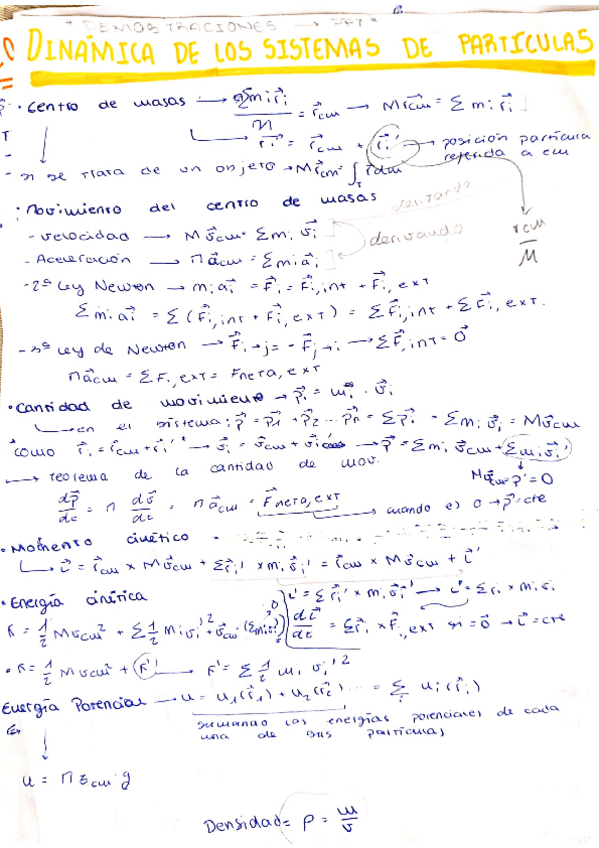 * DEMOSTRACIONES → PPT *
DINÁMICA DE LOS SISTEMAS DE PARTÍCULAS
· Centro de masas → Σm_i r⃗_i / M = r⃗_cm → M r⃗_cm = Σ m_i r⃗_i
r⃗_i = r⃗_cm + r⃗_i' → posición partícula
referida a cm
- si se trata de un objeto → M r⃗_cm = ∫ r⃗ dm
· Movimiento del centro de masas
- velocidad → M v⃗_cm = Σ m_i v⃗_i
derivando
r_cm / M
- Aceleración → M a⃗_cm = Σ m_i a⃗_i
- 2ª Ley Newton → m_i a⃗_i = F⃗_i = F⃗_i,int + F⃗_i,ext
Σ m_i a⃗_i = Σ (F⃗_i,int + F⃗_i,ext) = Σ F⃗_i,int + Σ F⃗_i,ext.
- 3ª Ley de Newton → F⃗_i→j = - F⃗_j→i → Σ F⃗_i,int = 0⃗
M a⃗_cm = Σ F_i,ext = F neta,ext
· Cantidad de movimiento → p⃗_i = m_i · v⃗_i
en el sistema: p⃗ = p⃗_1 + p⃗_2 ... p⃗_n = Σ p⃗_i = Σ m_i v⃗_i = M v⃗_cm
como r⃗_i = r⃗_cm + r⃗_i' → v⃗_i = v⃗_cm + v⃗_i' → p⃗ = Σ m_i v⃗_cm + Σ m_i v⃗_i'
→ teorema de la cantidad de mov.
p⃗' = 0
dp⃗/dt = M dv⃗/dt = M a⃗_cm = F⃗ neta,ext → cuando es 0 → p⃗ = cte
· Momento cinético
L⃗ = r⃗_cm × M v⃗_cm + Σ r⃗_i' × m_i v⃗_i' = r⃗_cm × M v⃗_cm + L⃗'
L⃗' = Σ r⃗_i' × m_i v⃗_i' → L⃗ = Σ r_i × m_i v_i
· Energía cinética
K = 1/2 M v_cm² + Σ 1/2 m_i v_i'² + v⃗_cm (Σ m_i v⃗_i')
dL⃗/dt = Σ r⃗_i × F⃗_i,ext si = 0⃗ → L⃗ = cte
· K = 1/2 M v_cm² + K' → K' = Σ 1/2 m_i v_i'²
Energía Potencial → u = u_1(r⃗_1) + u_2(r⃗_2) ... = Σ u_i(r⃗_i)
sumando las energías potenciales de cada
una de sus partículas
u = M z_cm g
Densidad = ρ = m/v